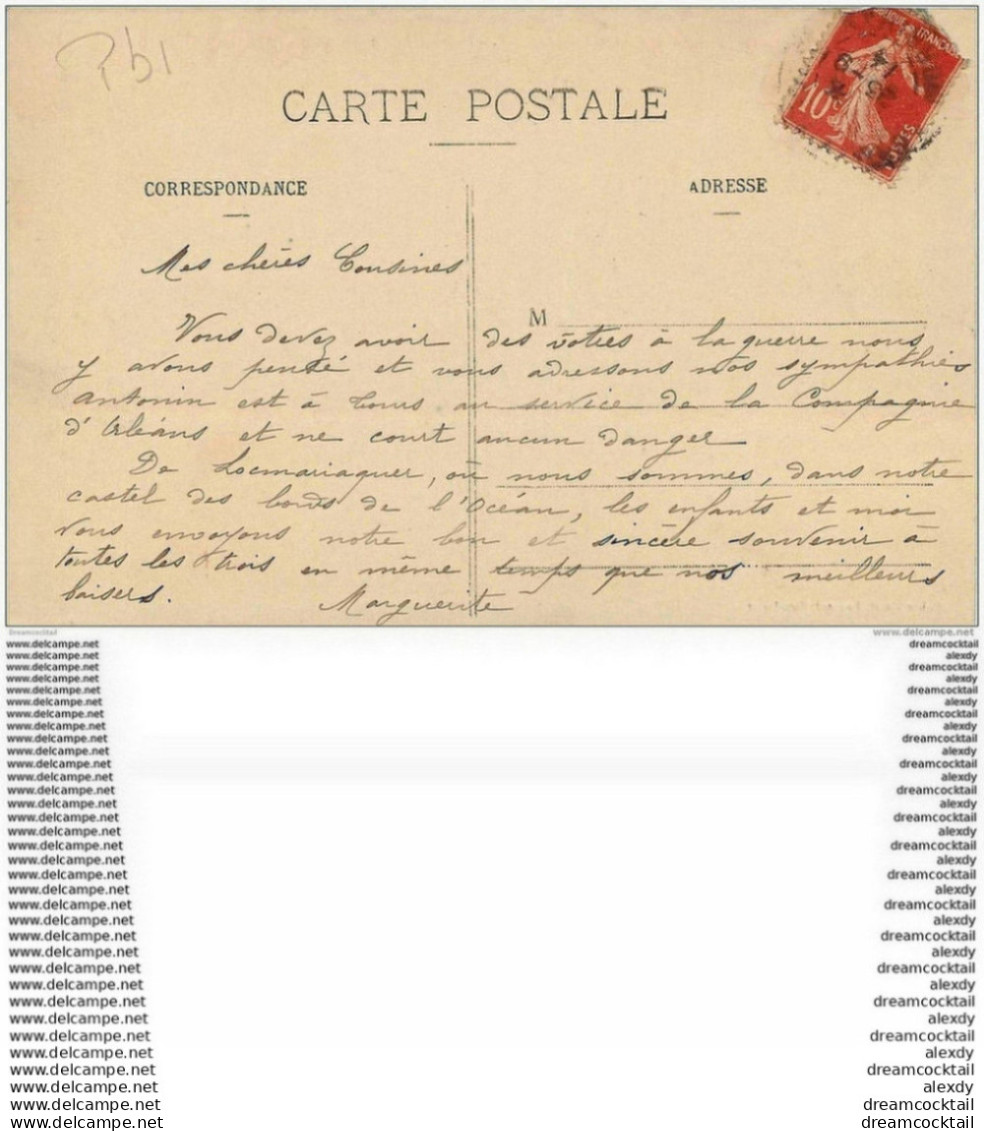 CARTE POSTALE
CORRESPONDANCE
ADRESSE
10c
Mes chères Cousines
M
Vous devez avoir des vôtres à la guerre nous
y avons pensé et vous adressons nos sympathies
Antonin est à Tours au service de la Compagnie
d'Orléans et ne court aucun danger
De Locmariaquer, où nous sommes, dans notre
castel des bords de l'Océan, les enfants et moi
vous envoyons notre bon et sincère souvenir à
toutes les trois en même temps que nos meilleurs
baisers. Marguerite
Dreamcocktail www.delcampe.net
www.delcampe.net dreamcocktail
www.delcampe.net alexdy
www.delcampe.net dreamcocktail
www.delcampe.net alexdy
www.delcampe.net dreamcocktail
www.delcampe.net alexdy
www.delcampe.net dreamcocktail
www.delcampe.net alexdy
www.delcampe.net dreamcocktail
www.delcampe.net alexdy
www.delcampe.net dreamcocktail
www.delcampe.net alexdy
www.delcampe.net dreamcocktail
www.delcampe.net alexdy
www.delcampe.net dreamcocktail
www.delcampe.net alexdy
www.delcampe.net dreamcocktail
www.delcampe.net alexdy
www.delcampe.net dreamcocktail
www.delcampe.net alexdy
www.delcampe.net dreamcocktail
www.delcampe.net alexdy
www.delcampe.net dreamcocktail
www.delcampe.net alexdy
www.delcampe.net dreamcocktail
www.delcampe.net alexdy
www.delcampe.net dreamcocktail
www.delcampe.net alexdy
www.delcampe.net dreamcocktail
www.delcampe.net alexdy
www.delcampe.net dreamcocktail
www.delcampe.net alexdy
www.delcampe.net dreamcocktail
www.delcampe.net alexdy
www.delcampe.net dreamcocktail
www.delcampe.net dreamcocktail